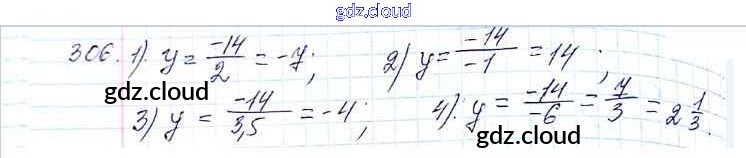 gdz.cloud
306. 1). y = -14/2 = -7; 2) y = -14/-1 = 14;
gdz.cloud
3) y = -14/3,5 = -4; 4). y = -14/-6 = 7/3 = 2 1/3.
gdz.cloud